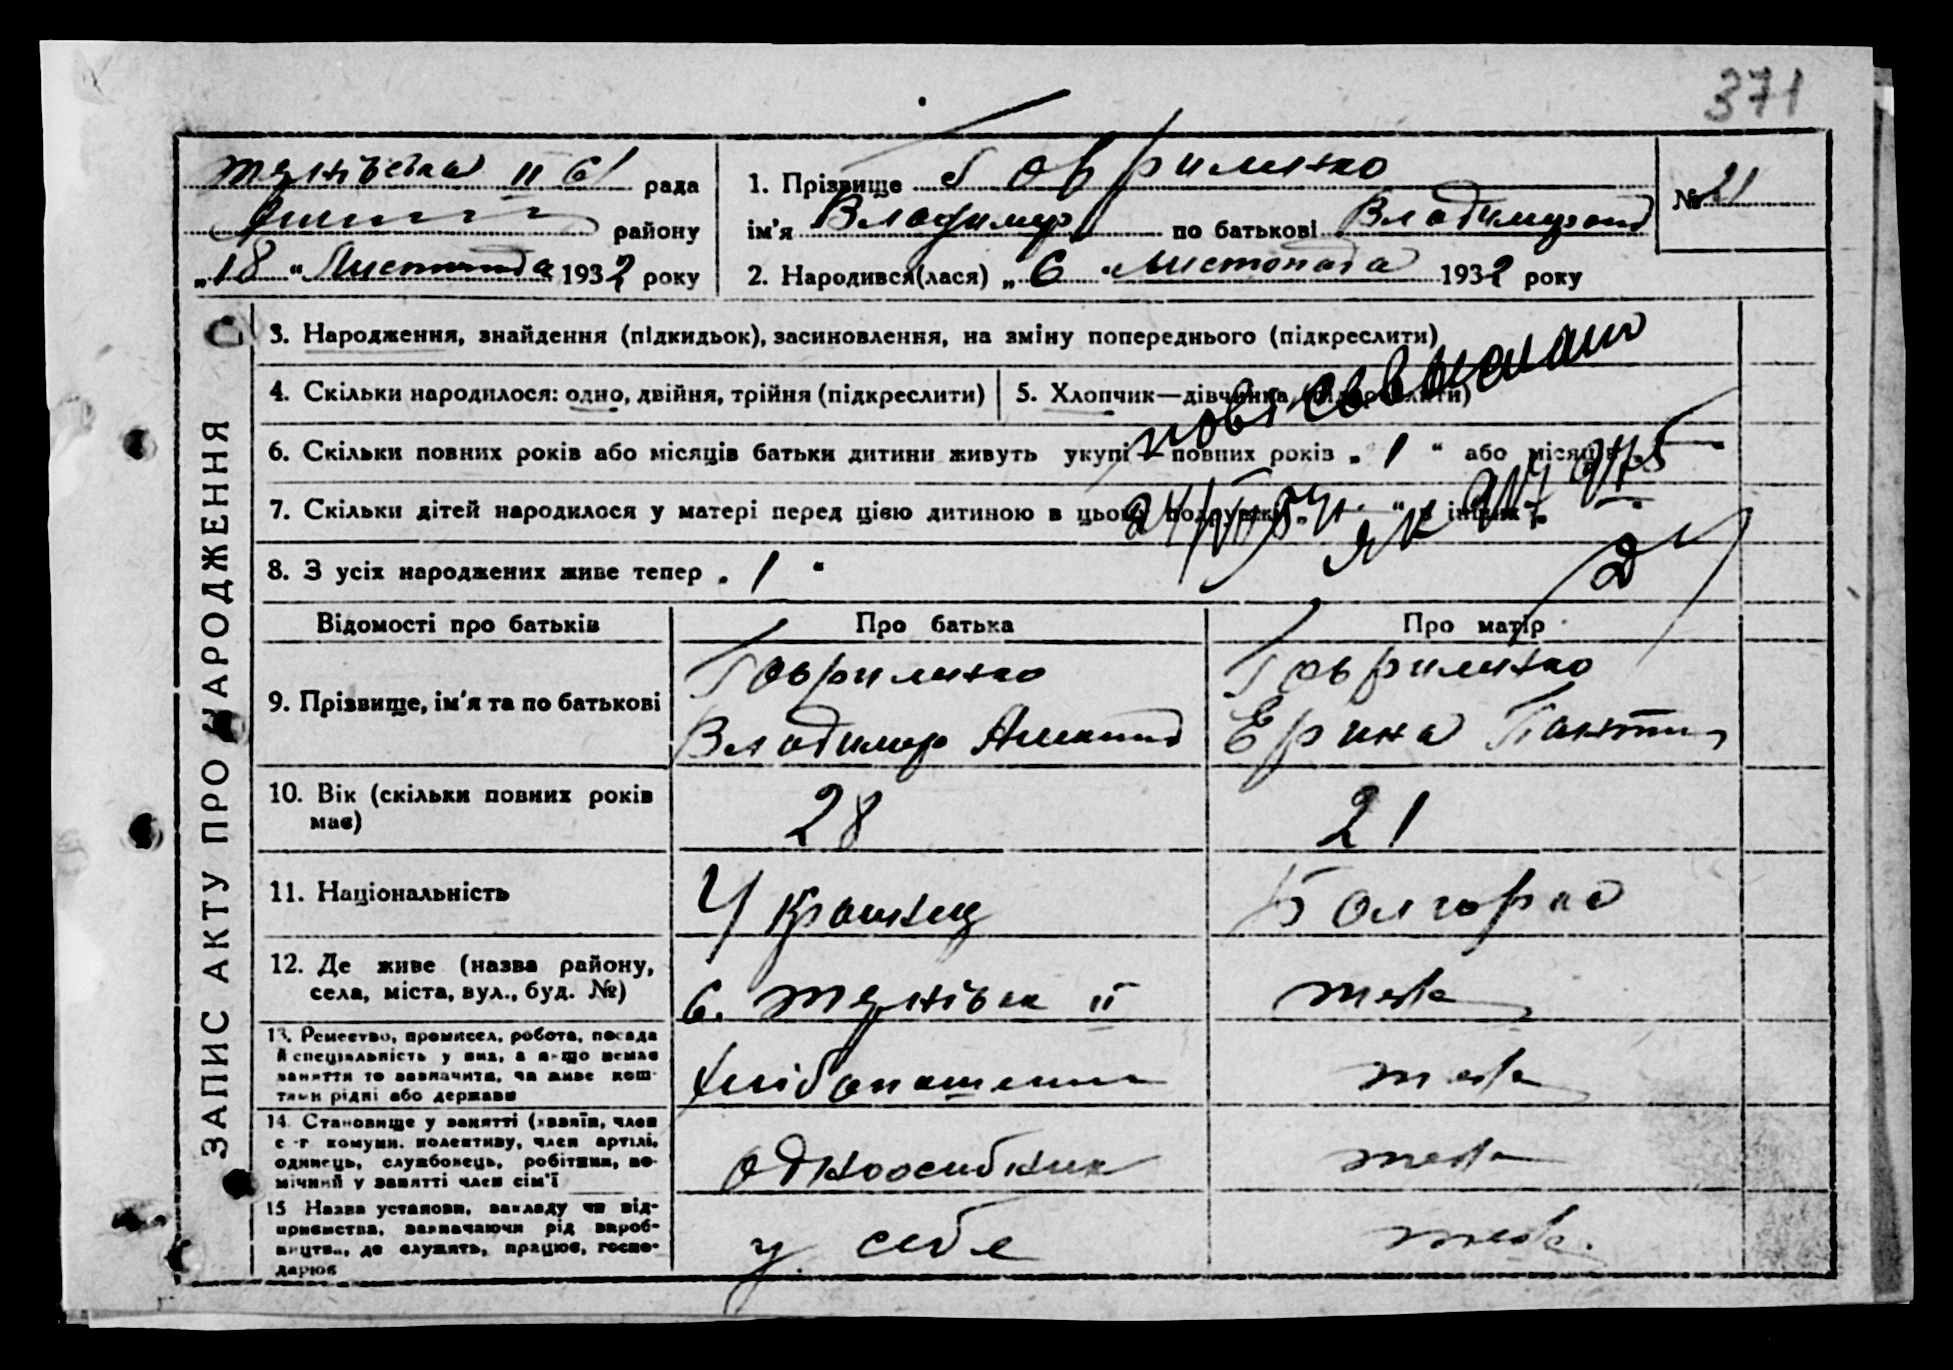 371
рада
району
„ 18 “ Листопада 1932 року
1. Прізвище Гавриленко
ім'я Владимир по батькові
2. Народився(лася) „ 6 “ Листопада 1932 року
№ 21
ЗАПИС АКТУ ПРО НАРОДЖЕННЯ
3. Народження, знайдення (підкидьок), засиновлення, на зміну попереднього (підкреслити)
4. Скільки народилося: одно, двійня, трійня (підкреслити)
5. Хлопчик—дівчинка (підкреслити)
6. Скільки повних років або місяців батьки дитини живуть укупі повних років „ 1 “ або місяців
7. Скільки дітей народилося у матері перед цією дитиною в цьому подружжі
8. З усіх народжених живе тепер „ 1 “
Відомості про батьків
Про батька
Про матір
9. Прізвище, ім'я та по батькові
Гавриленко
Владимир
Гавриленко
Ерина
10. Вік (скільки повних років
має)
28
21
11. Національність
Украинец
Болгарка
12. Де живе (назва району,
села, міста, вул., буд. №)
с. II
13. Ремество, промисел, робота, посада
й спеціяльність у них, а якщо немає
заняття то зазначити, чи живе кош-
тами рідні або держави
14. Становище у занятті (хазяїн, член
с.-г. комуни, колективу, член артілі,
одинець, службовець, робітник, по-
мічний у занятті член сім'ї
одноосибник
15 Назва установи, закладу чи під-
приємства, зазначаючи рід вироб-
ництва, де служить, працює, госпо-
дарює
у себе